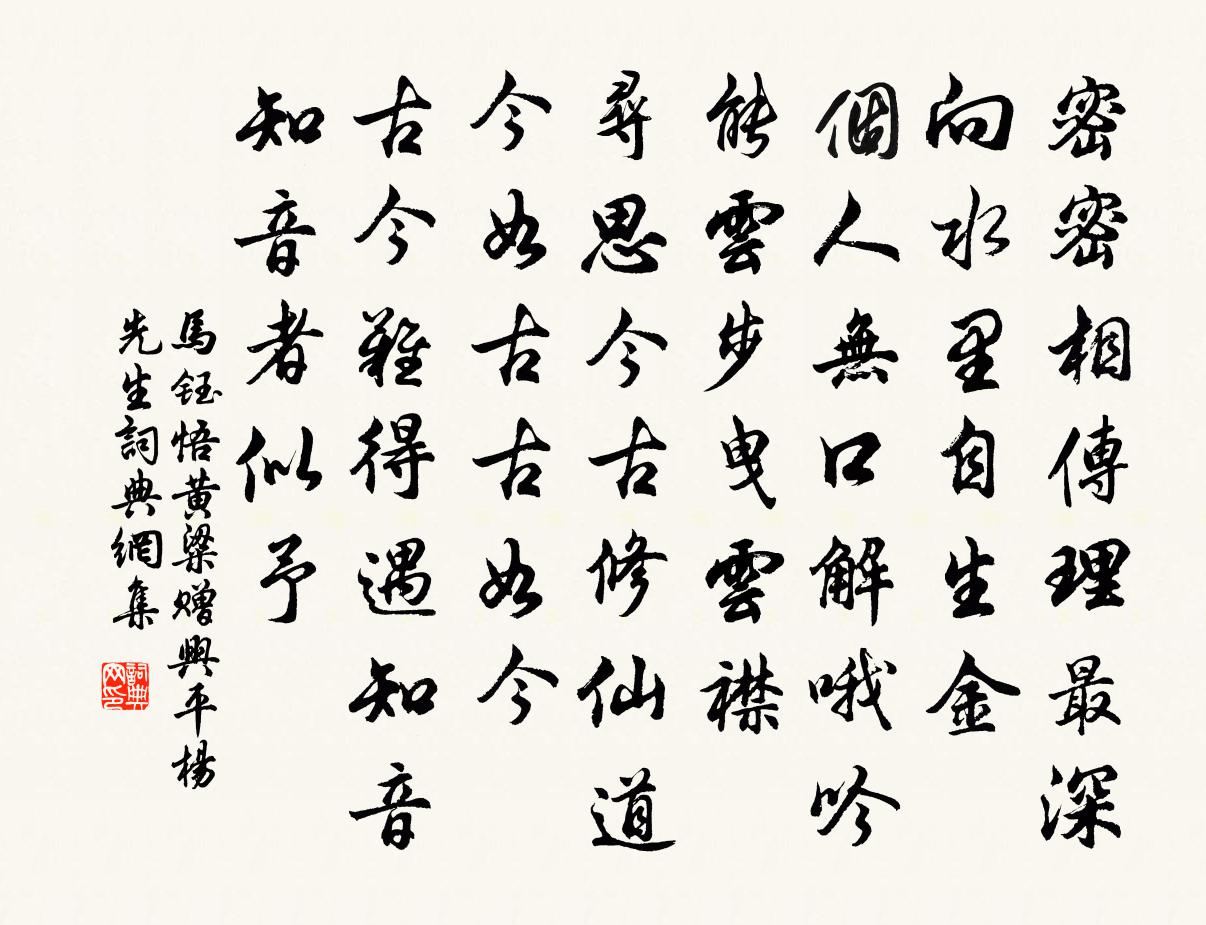 密密相傳理最深
向水里自生金
個人無口解哦吟
能雲步曳雲襟
尋思今古修仙道
今如古古如今
古今難得遇知音
知音者似予
馬鈺悟黃粱贈興平楊
先生詞典網集
詞典網印